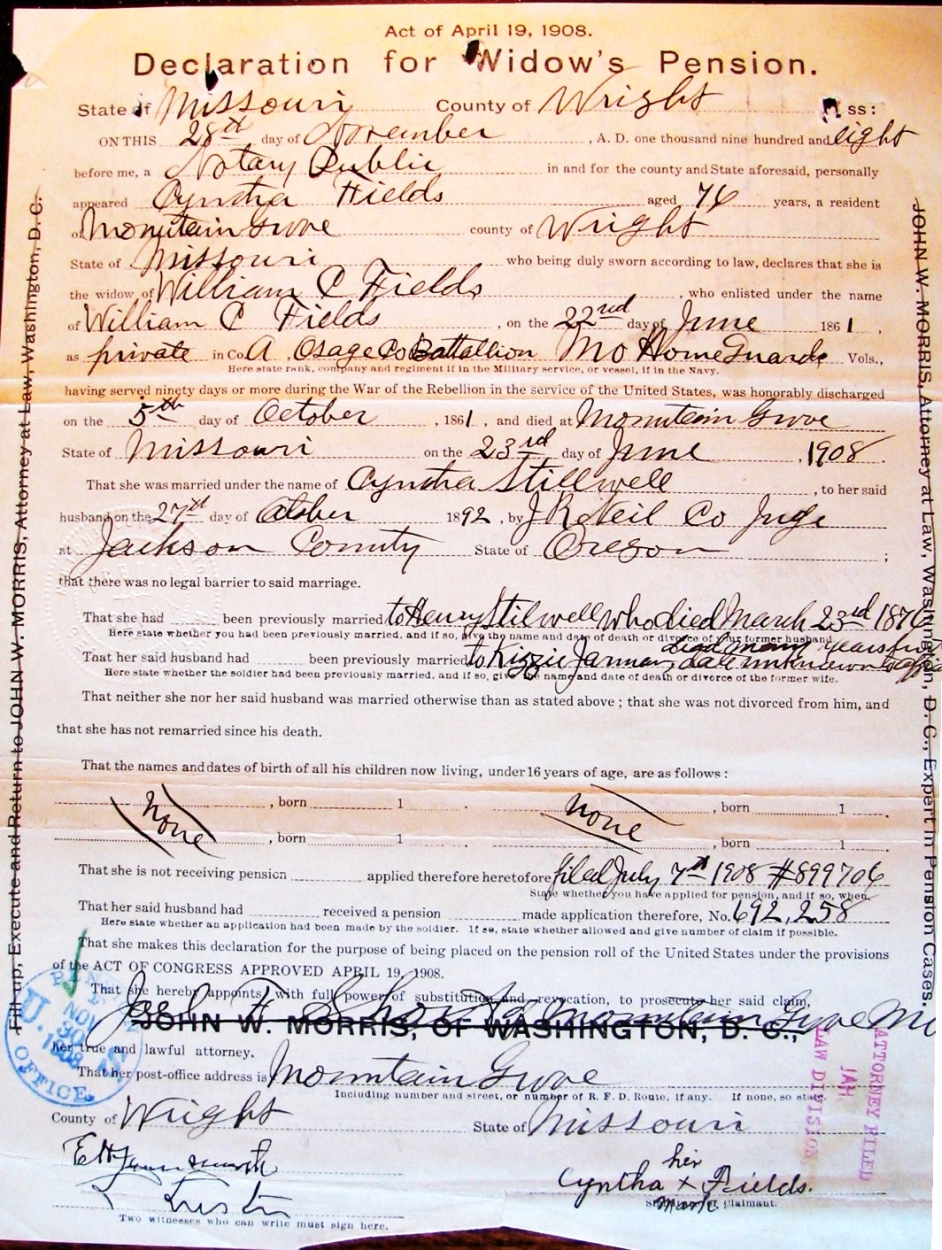 Act of April 19, 1908.
Declaration for Widow's Pension.
State of Missouri County of Wright ss:
ON THIS 28th day of November, A. D. one thousand nine hundred and eight
before me, a Notary Public in and for the county and State aforesaid, personally
appeared Cyntha Fields aged 76 years, a resident
of Mountain Grove county of Wright
State of Missouri who being duly sworn according to law, declares that she is
the widow of William C Fields, who enlisted under the name
of William C Fields, on the 22nd day of June 1861,
as private in Co. A Osage Co Battallion Mo Home Guards Vols.,
Here state rank, company and regiment if in the Military service, or vessel, if in the Navy.
having served ninety days or more during the War of the Rebellion in the service of the United States, was honorably discharged
on the 5th day of October, 1861, and died at Mountain Grove
State of Missouri on the 23rd day of June, 1908
That she was married under the name of Cyntha Stillwell, to her said
husband on the 27th day of October 1892, by J R Neil Co Juge
at Jackson County State of Oregon;
that there was no legal barrier to said marriage.
That she had been previously married to Henry Stilwell who died March 23rd 1876
Here state whether you had been previously married, and if so, give the name and date of death or divorce of our former husband
died many years
That her said husband had been previously married to Kizzie Jarman, date unknown
Here state whether the soldier had been previously married, and if so, give the name and date of death or divorce of the former wife.
That neither she nor her said husband was married otherwise than as stated above; that she was not divorced from him, and
that she has not remarried since his death.
That the names and dates of birth of all his children now living, under 16 years of age, are as follows:
none, born 1 . none, born 1 .
, born 1 . , born 1 .
That she is not receiving pension applied therefore heretofore filed July 7th 1908 #899706
State whether you have applied for pension, and if so, when.
That her said husband had received a pension made application therefore, No. 692,258
Here state whether an application had been made by the soldier. If so, state whether allowed and give number of claim if possible.
That she makes this declaration for the purpose of being placed on the pension roll of the United States under the provisions
of the ACT OF CONGRESS APPROVED APRIL 19, 1908.
That she hereby appoints, with full power of substitution and revocation, to prosecute her said claim,
Mountain Grove Mo
JOHN W. MORRIS, OF WASHINGTON, D. C.,
her true and lawful attorney.
That her post-office address is Mountain Grove
Including number and street, or number of R. F. D. Route, if any. If none, so state.
County of Wright State of Missouri
Cyntha her x mark Fields.
Signature of Claimant.
Two witnesses who can write must sign here.
Fill up, Execute and Return to JOHN W. MORRIS, Attorney at Law, Washington, D. C.
JOHN W. MORRIS, Attorney at Law, Washington, D. C., Expert in Pension Cases.
U.S. NOV 30 1908 OFFICE
ATTORNEY FILED
JAN
LAW DIVISION